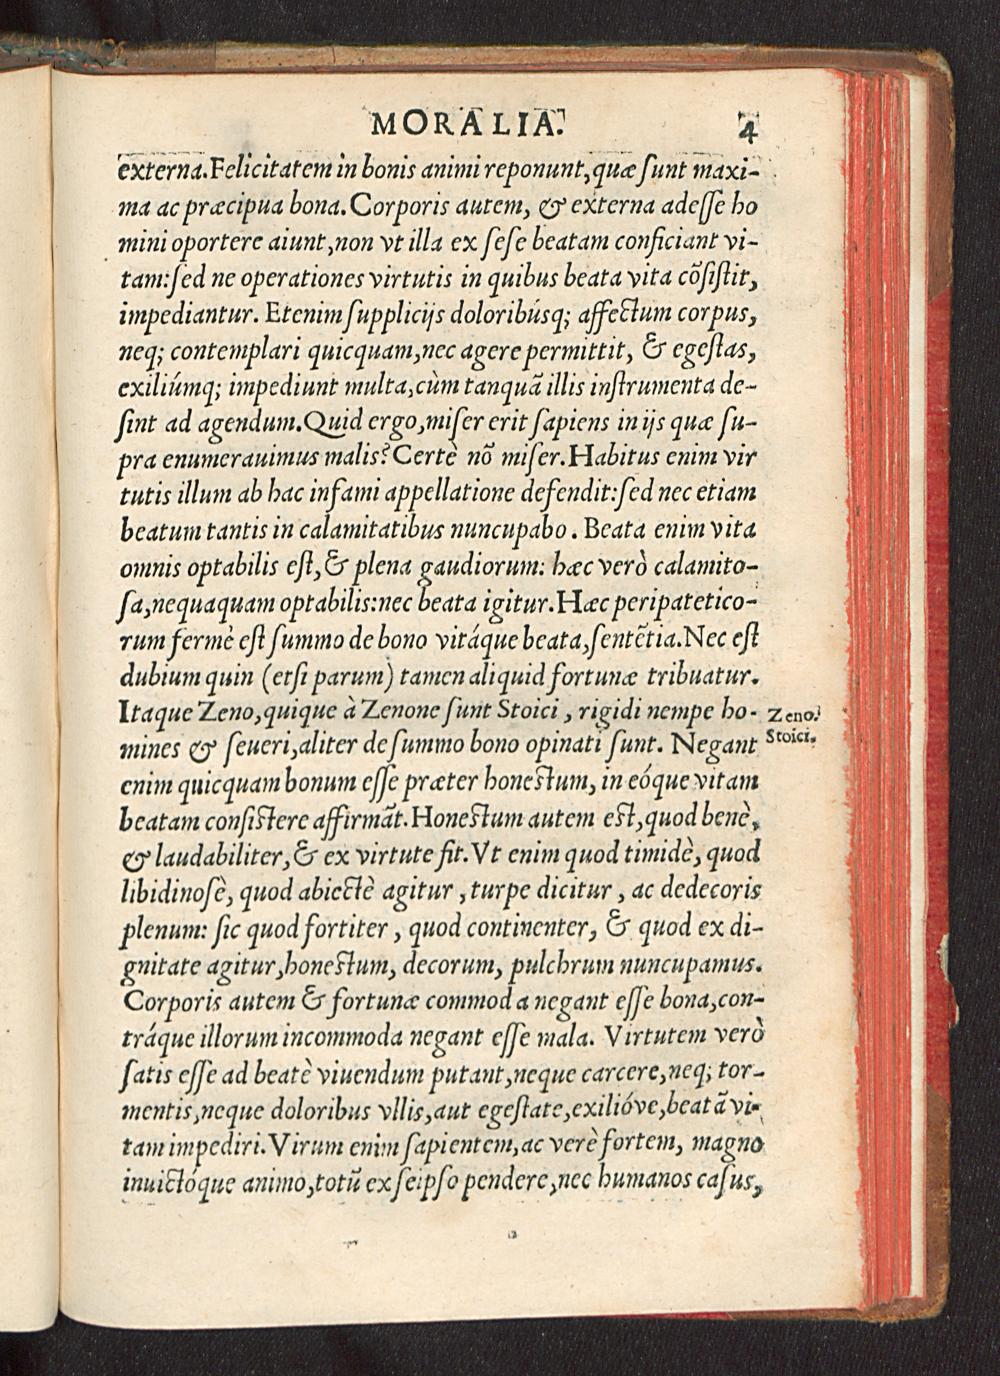 MORALIA.
4
externa. Felicitatem in bonis animi reponunt, quæ ſunt maxi-
ma ac præcipua bona. Corporis autem, & externa adeſſe ho
mini oportere aiunt, non vt illa ex ſeſe beatam conficiant vi-
tam: ſed ne operationes virtutis in quibus beata vita cõſiſtit,
impediantur. Etenim ſupplicijs doloribúsq; affectum corpus,
neq; contemplari quicquam, nec agere permittit, & egeſtas,
exiliúmq; impediunt multa, cùm tanquã illis inſtrumenta de-
ſint ad agendum. Quid ergo, miſer erit ſapiens in ijs quæ ſu-
pra enumerauimus malis? Certè nõ miſer. Habitus enim vir
tutis illum ab hac infami appellatione defendit: ſed nec etiam
beatum tantis in calamitatibus nuncupabo. Beata enim vita
omnis optabilis eſt, & plena gaudiorum: hæc verò calamito-
ſa, nequaquam optabilis: nec beata igitur. Hæc peripatetico-
rum fermè eſt ſummo de bono vitáque beata, ſentẽtia. Nec eſt
dubium quin (etſi parum) tamen aliquid fortunæ tribuatur.
Itaque Zeno, quique à Zenone ſunt Stoici, rigidi nempe ho-
mines & ſeueri, aliter de ſummo bono opinati ſunt. Negant
enim quicquam bonum eſſe præter honeſtum, in eóque vitam
beatam conſiſtere affirmãt. Honeſtum autem eſt, quod benè,
& laudabiliter, & ex virtute fit. Vt enim quod timidè, quod
libidinoſè, quod abiectè agitur, turpe dicitur, ac dedecoris
plenum: ſic quod fortiter, quod continenter, & quod ex di-
gnitate agitur, honeſtum, decorum, pulchrum nuncupamus.
Corporis autem & fortunæ commoda negant eſſe bona, con-
tráque illorum incommoda negant eſſe mala. Virtutem verò
ſatis eſſe ad beatè viuendum putant, neque carcere, neq; tor-
mentis, neque doloribus vllis, aut egeſtate, exilióve, beatã vi-
tam impediri. Virum enim ſapientem, ac verè fortem, magno
inuictóque animo, totũ ex ſeipſo pendere, nec humanos caſus,
Zeno.
Stoici.